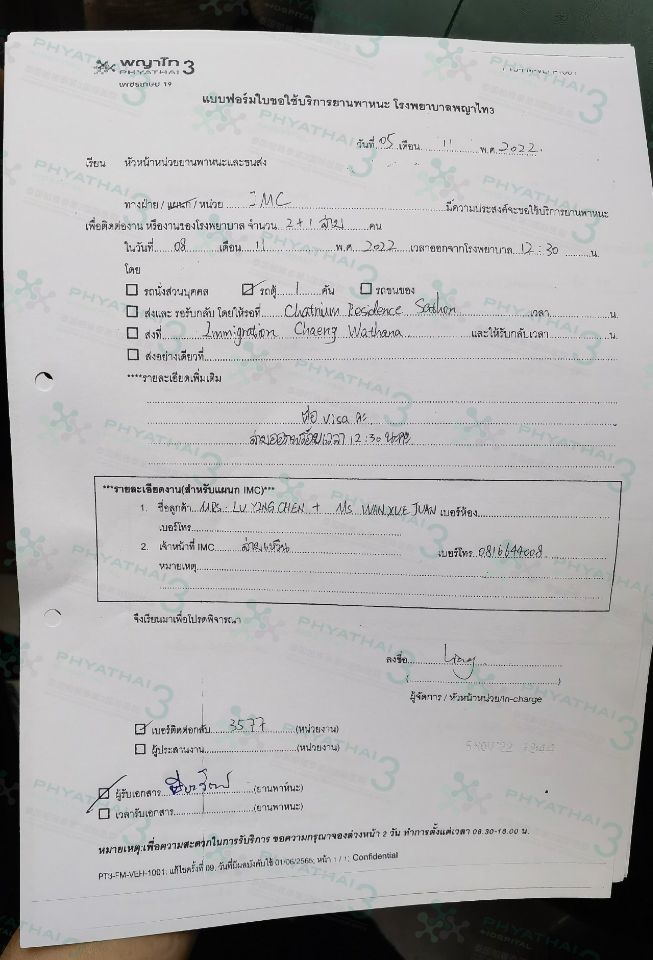 พญาไท 3
PHYATHAI 3
เพชรเกษม 19
แบบฟอร์มใบขอใช้บริการยานพาหนะ โรงพยาบาลพญาไท3
วันที่ 05 เดือน 11 พ.ศ. 2022
เรียน หัวหน้าหน่วยยานพาหนะและขนส่ง
ทางฝ่าย / แผนก / หน่วย IMC มีความประสงค์จะขอใช้บริการยานพาหนะ
เพื่อติดต่องาน หรืองานของโรงพยาบาล จำนวน 2+1 ล่าม คน
ในวันที่ 08 เดือน 11 พ.ศ. 2022 เวลาออกจากโรงพยาบาล 12:30 น.
โดย
รถนั่งส่วนบุคคล รถตู้ 1 คัน รถขนของ
ส่งและ รอรับกลับ โดยให้รอที่ Chatrium Residence Sathon เวลา น.
ส่งที่ Immigration Chaeng Wathana และให้รับกลับเวลา น.
ส่งอย่างเดียวที่
****รายละเอียดเพิ่มเติม
ต่อ visa ค่ะ
ล่ามออกพร้อมเวลา 12:30 นะคะ
***รายละเอียดงาน(สำหรับแผนก IMC)***
1. ชื่อลูกค้า MRS. LV YING CHEN + Ms WAN XUE JUAN เบอร์ห้อง
เบอร์โทร
2. เจ้าหน้าที่ IMC เบอร์โทร 0816644008
หมายเหตุ
จึงเรียนมาเพื่อโปรดพิจารณา
ลงชื่อ Ling
( )
ผู้จัดการ / หัวหน้าหน่วย/in-charge
เบอร์ติดต่อกลับ 3577 (หน่วยงาน)
ผู้ประสานงาน (หน่วยงาน)
ผู้รับเอกสาร (ยานพาหนะ)
เวลารับเอกสาร (ยานพาหนะ)
หมายเหตุ:เพื่อความสะดวกในการรับริการ ขอความกรุณาจองล่วงหน้า 2 วัน ทำการตั้งแต่เวลา 08.30-18.00 น.
PT3-FM-VEH-1001: แก้ไขครั้งที่ 09, วันที่มีผลบังคับใช้ 01/06/2565; หน้า 1 / 1; Confidential